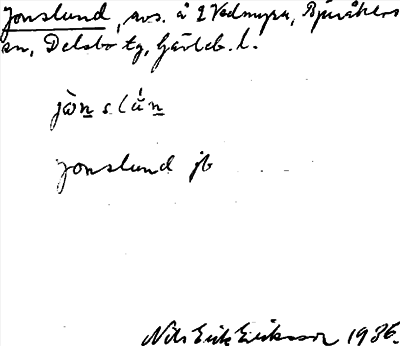 Jonslund, avs. å 2 Vedmyra, Bjuråkers
sn, Delsbo tg, Gävleb. l.
jὼn̲ s lǻn̲
Jonslund jb
Nils Erik Eriksson 1936.